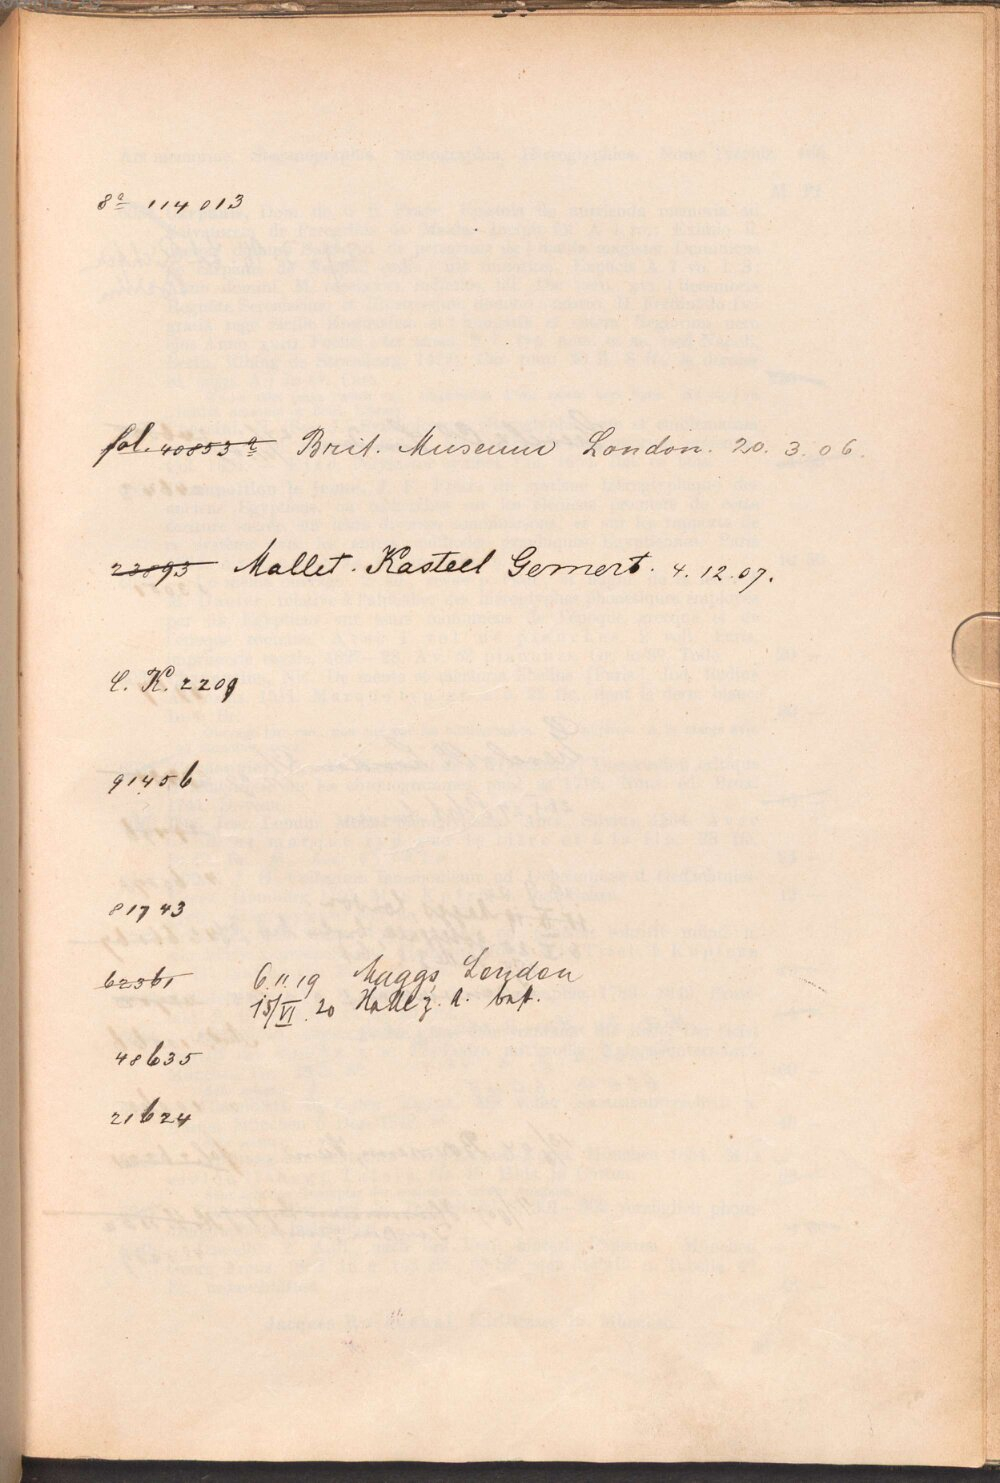 8º 114013
fol. 40853ª Brit. Museum London. 20. 3. 06.
23893 Mallet. Kasteel Gemert. 4. 12. 07.
C. K. 2209
91456
81743
62561 6. 11. 19 Maggs London
15/VI. 20 Halle z. A.
48635
21624